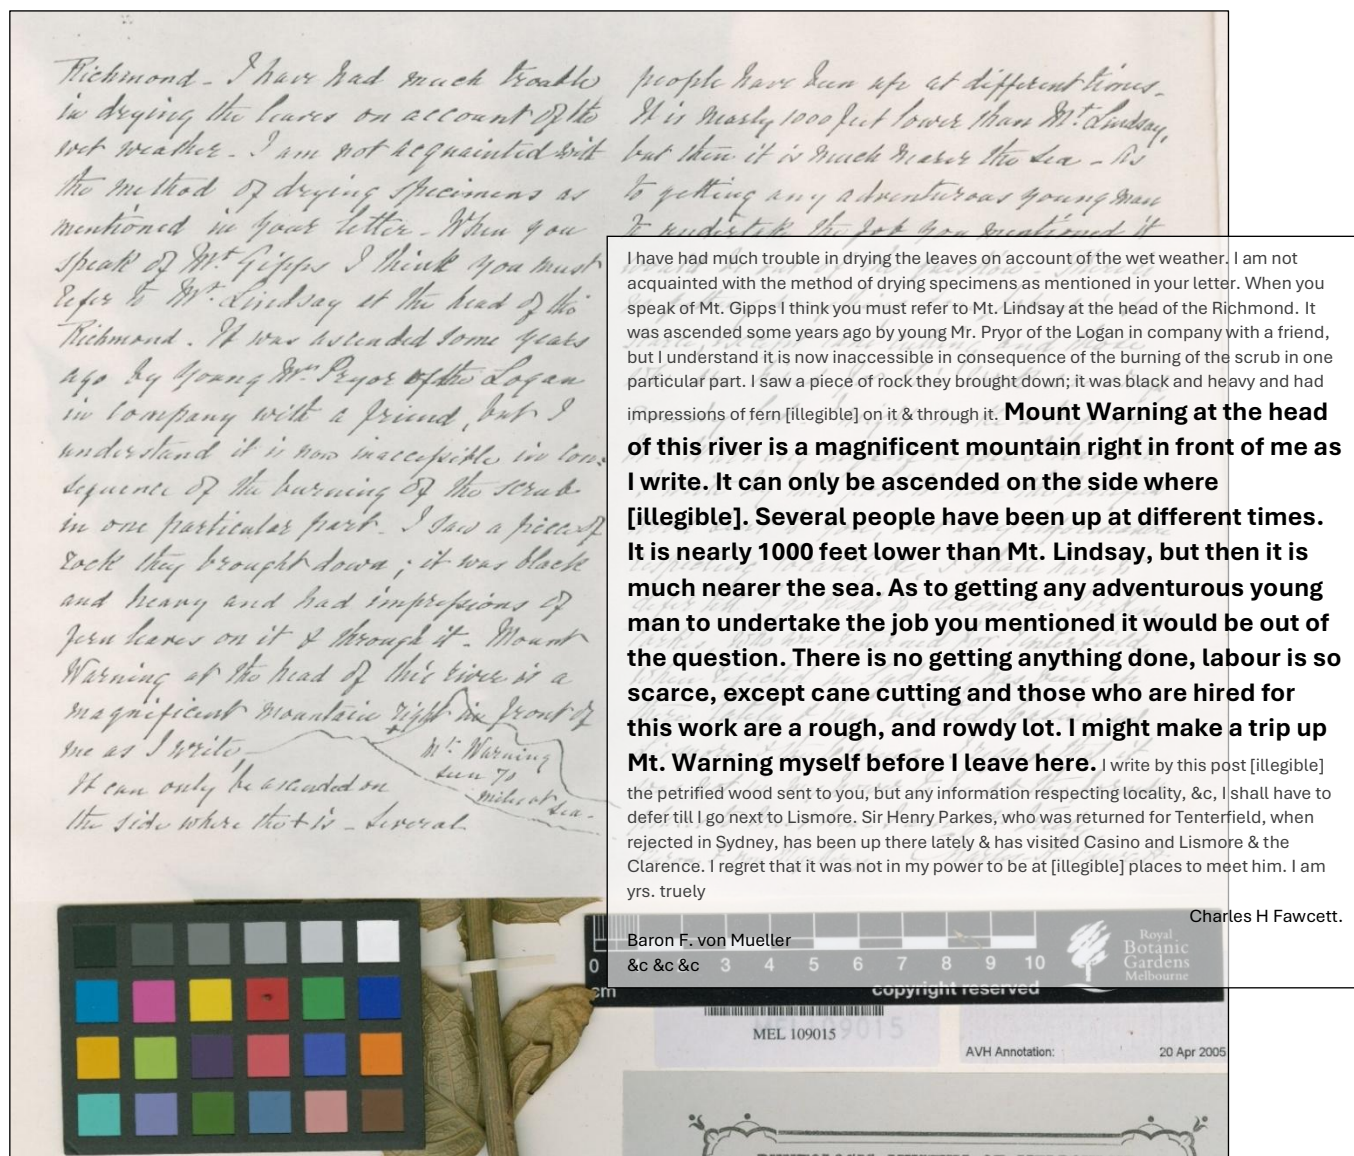 Richmond - I have had much trouble
in drying the leaves on account of the
wet weather - I am not acquainted with
the method of drying specimens as
mentioned in your letter - When you
speak of Mt. Gipps I think you must
refer to Mt. Lindsay at the head of the
Richmond. It was ascended some years
ago by young Mr. Pryor of the Logan
in company with a friend, but I
understand it is now inaccessible in con-
sequence of the burning of the scrub
in one particular part. I saw a piece of
rock they brought down; it was black
and heavy and had impressions of
fern leaves on it & through it - Mount
Warning at the head of this river is a
magnificent mountain right in front of
me as I write,
It can only be ascended on
the side where the + is - Several
Mt. Warning
seen 70
miles at
sea.
people have been up at different times.
It is nearly 1000 feet lower than Mt. Lindsay,
but then it is much nearer the sea - As
to getting any adventurous young man
to undertake the job you mentioned it
I have had much trouble in drying the leaves on account of the wet weather. I am not
acquainted with the method of drying specimens as mentioned in your letter. When you
speak of Mt. Gipps I think you must refer to Mt. Lindsay at the head of the Richmond. It
was ascended some years ago by young Mr. Pryor of the Logan in company with a friend,
but I understand it is now inaccessible in consequence of the burning of the scrub in one
particular part. I saw a piece of rock they brought down; it was black and heavy and had
impressions of fern [illegible] on it & through it. Mount Warning at the head
of this river is a magnificent mountain right in front of me as
I write. It can only be ascended on the side where
[illegible]. Several people have been up at different times.
It is nearly 1000 feet lower than Mt. Lindsay, but then it is
much nearer the sea. As to getting any adventurous young
man to undertake the job you mentioned it would be out of
the question. There is no getting anything done, labour is so
scarce, except cane cutting and those who are hired for
this work are a rough, and rowdy lot. I might make a trip up
Mt. Warning myself before I leave here. I write by this post [illegible]
the petrified wood sent to you, but any information respecting locality, &c, I shall have to
defer till I go next to Lismore. Sir Henry Parkes, who was returned for Tenterfield, when
rejected in Sydney, has been up there lately & has visited Casino and Lismore & the
Clarence. I regret that it was not in my power to be at [illegible] places to meet him. I am
yrs. truely
Charles H Fawcett.
Baron F. von Mueller
&c &c &c
0 1 2 3 4 5 6 7 8 9 10
cm
copyright reserved
Royal
Botanic
Gardens
Melbourne
MEL 109015
MEL 109015
AVH Annotation: 20 Apr 2005